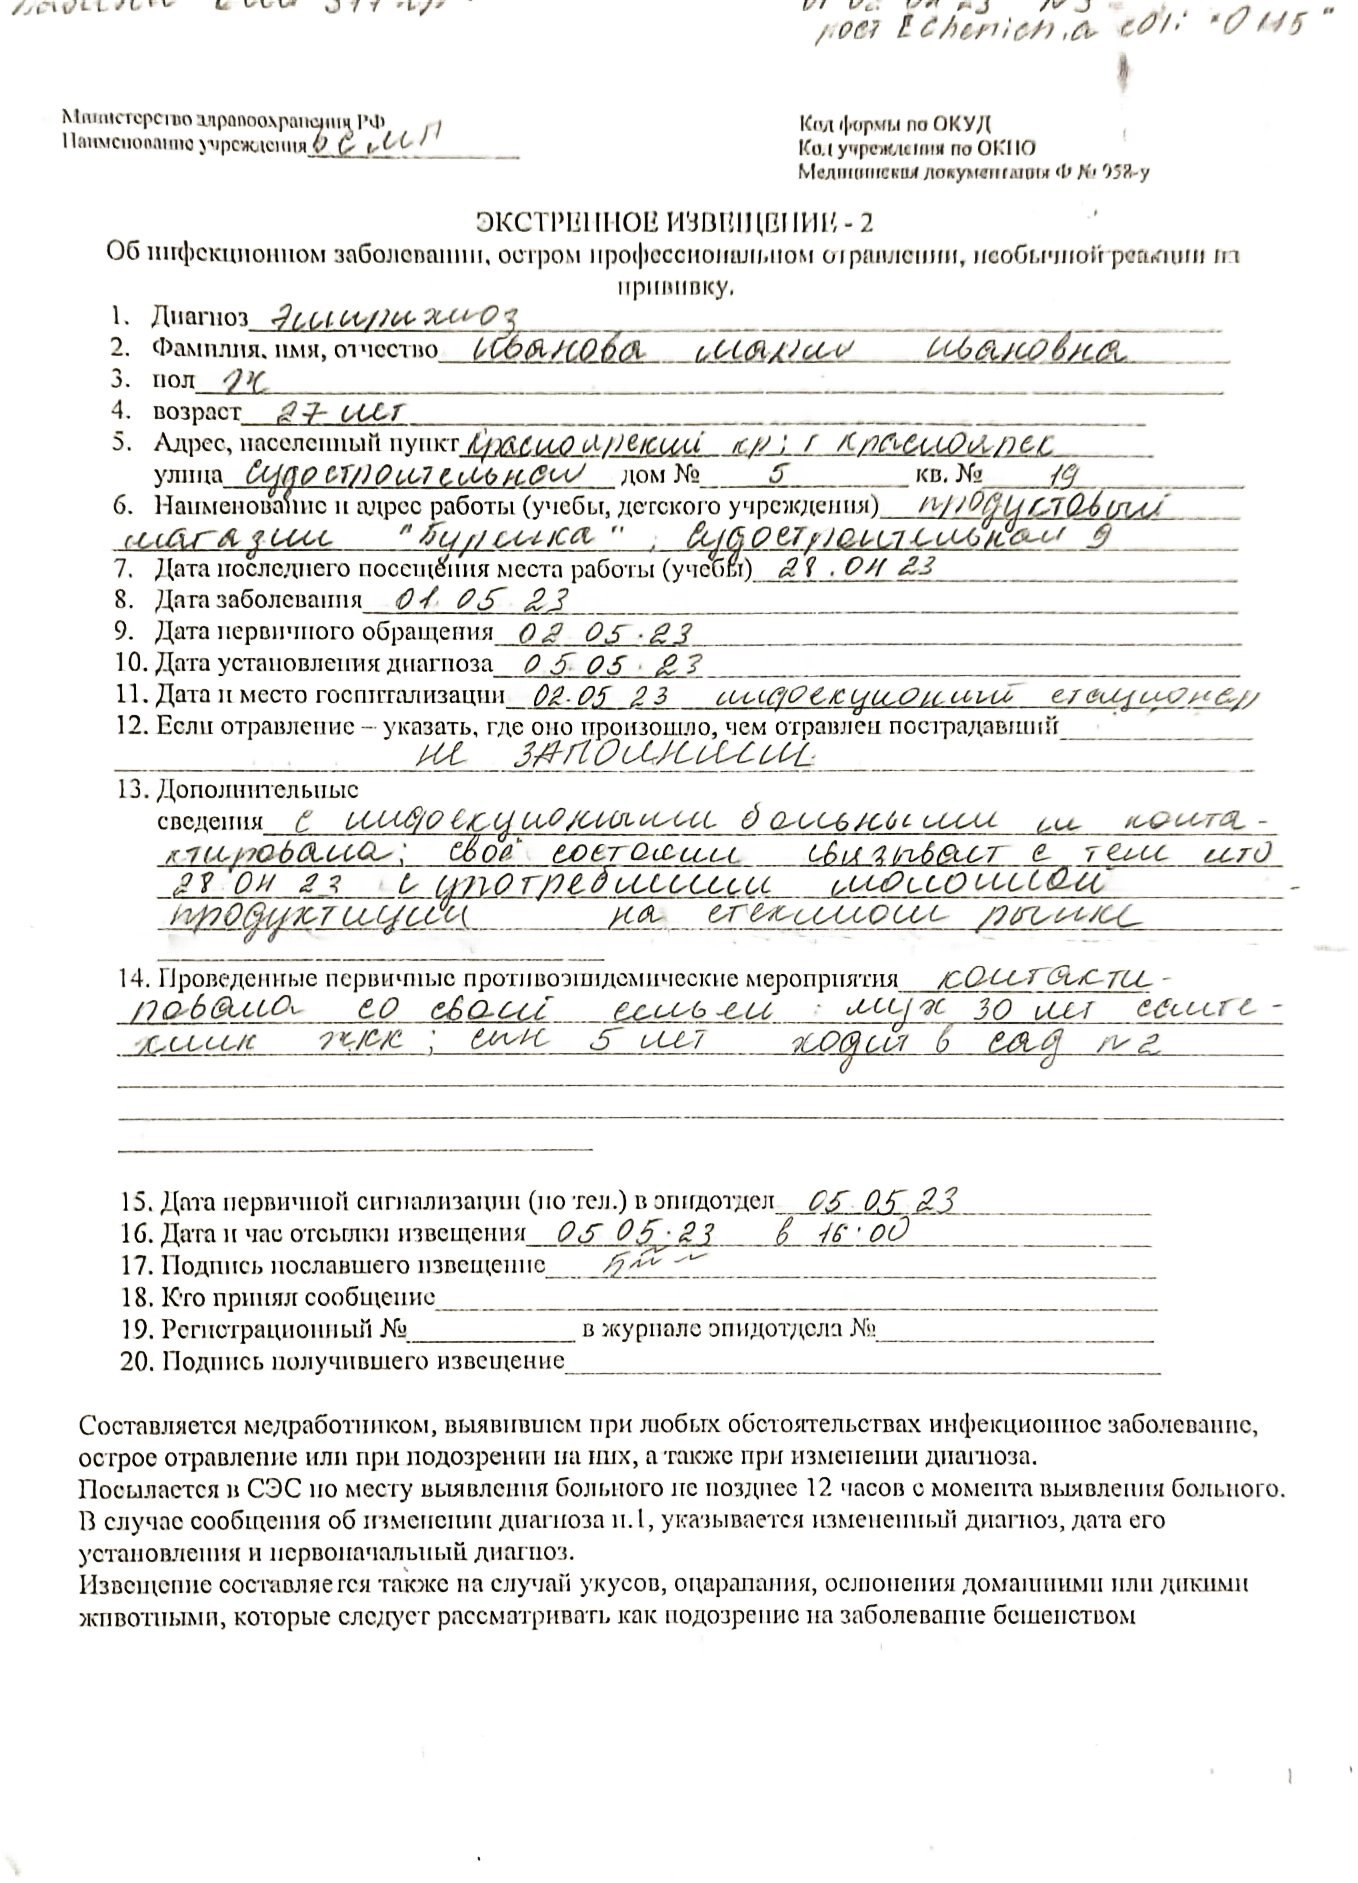 рост Echerichia coli "O 115"
Министерство здравоохранения РФ
Наименование учреждения БСМП
Код формы по ОКУД
Код учреждения по ОКПО
Медицинская документация Ф № 058-у
ЭКСТРЕННОЕ ИЗВЕЩЕНИЕ - 2
Об инфекционном заболевании, остром профессиональном отравлении, необычной реакции на
прививку.
1. Диагноз Эширихиоз
2. Фамилия, имя, отчество Иванова Мария Ивановна
3. пол Ж
4. возраст 27 лет
5. Адрес, населенный пункт Красноярский кр; г Красноярск
улица Судостроительная дом № 5 кв. № 19
6. Наименование и адрес работы (учебы, детского учреждения) продуктовый
магазин "Буренка", Судостроительная 9
7. Дата последнего посещения места работы (учебы) 28.04 23
8. Дата заболевания 01 05 23
9. Дата первичного обращения 02 05.23
10. Дата установления диагноза 05 05.23
11. Дата и место госпитализации 02.05 23 инфекционный стационар
12. Если отравление – указать, где оно произошло, чем отравлен пострадавший
не заполняем
13. Дополнительные
сведения с инфекционными больными не конта-
ктировала; своё состояни связывает с тем что
28 04 23 с употреблении молочной
продуктиции на стихийном рынке
14. Проведенные первичные противоэпидемические мероприятия контакти-
ровала со своей семьей: муж 30 лет санте-
хник ЖКК; сын 5 лет ходит в сад №2
15. Дата первичной сигнализации (по тел.) в эпидотдел 05 05 23
16. Дата и час отсылки извещения 05 05.23 в 16.00
17. Подпись пославшего извещение
18. Кто принял сообщение
19. Регистрационный № в журнале эпидотдела №
20. Подпись получившего извещение
Составляется медработником, выявившем при любых обстоятельствах инфекционное заболевание,
острое отравление или при подозрении на них, а также при изменении диагноза.
Посылается в СЭС по месту выявления больного не позднее 12 часов с момента выявления больного.
В случае сообщения об изменении диагноза п.1, указывается измененный диагноз, дата его
установления и первоначальный диагноз.
Извещение составляется также на случай укусов, оцарапания, ослюнения домашними или дикими
животными, которые следует рассматривать как подозрение на заболевание бешенством